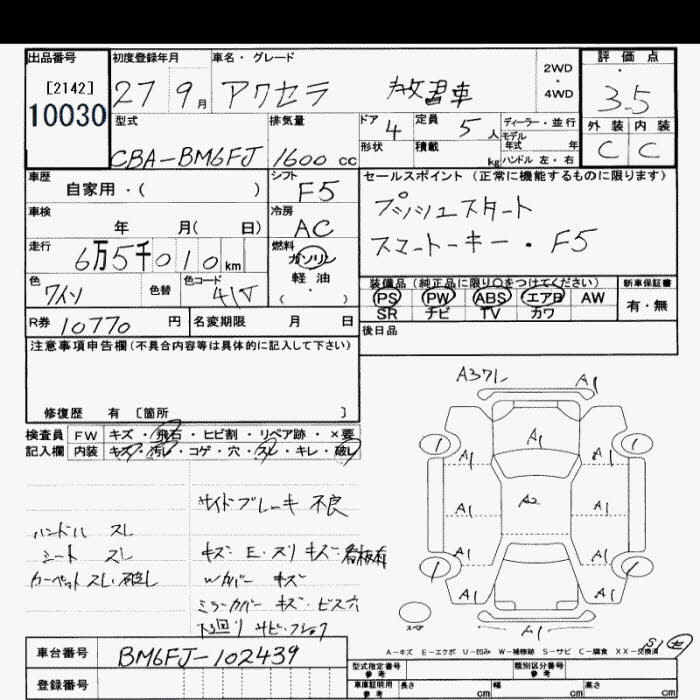 出品番号 初度登録年月 車名・グレード 2WD・4WD 評価点
[2142]
10030
27 9月 アクセラ 教習車 3.5
型式 排気量 ドア 4 定員 5人 ディーラー・並行 外装 内装
CBA-BM6FJ 1600cc 形状 積載 kg モデル年式 年 C C
ハンドル 左・右
車歴 シフト セールスポイント(正常に機能するものに限ります)
自家用・( ) F5 プッシュスタート
車検 年 月( 日) 冷房 AC スマートーキー・F5
走行 6万5千010km 燃料 ガソリン
軽油
・
( )
色 ワイン 色替 色コード 41V
装備品(純正品に限り○をつけてください) 新車保証書
PS PW ABS エアB AW 有・無
SR ナビ TV カワ
R券 10770円 名変期限 月 日 後日品
注意事項申告欄(不具合内容等は具体的に記入して下さい)
修復歴 有〔箇所 〕
検査員 FW キズ・飛石・ヒビ割・リペア跡・×要
記入欄 内装 キズ・汚レ・コゲ・穴・スレ・キレ・破レ
A371 A1
1 A1 1
A1 A2 A1
A1 A1
A1 A1
1 A1 A1 1
A1 A1
スペア A1
サイドブレーキ 不良
ハンドル スレ
シート スレ キズ・E・スリキズ 看板有
カーペットスレ・破レ Wカバー キズ
ミラーカバー キズ・ビス穴
下回り サビ・フレック
A-キズ E-エクボ U-凹み W-補修跡 S-サビ C-腐食 XX-交換済
S1
車台番号 BM6FJ-102439
型式指定番号 参考 類別区分番号 参考
登録番号 車庫証明用 参考 長さ cm 幅 cm 高さ cm